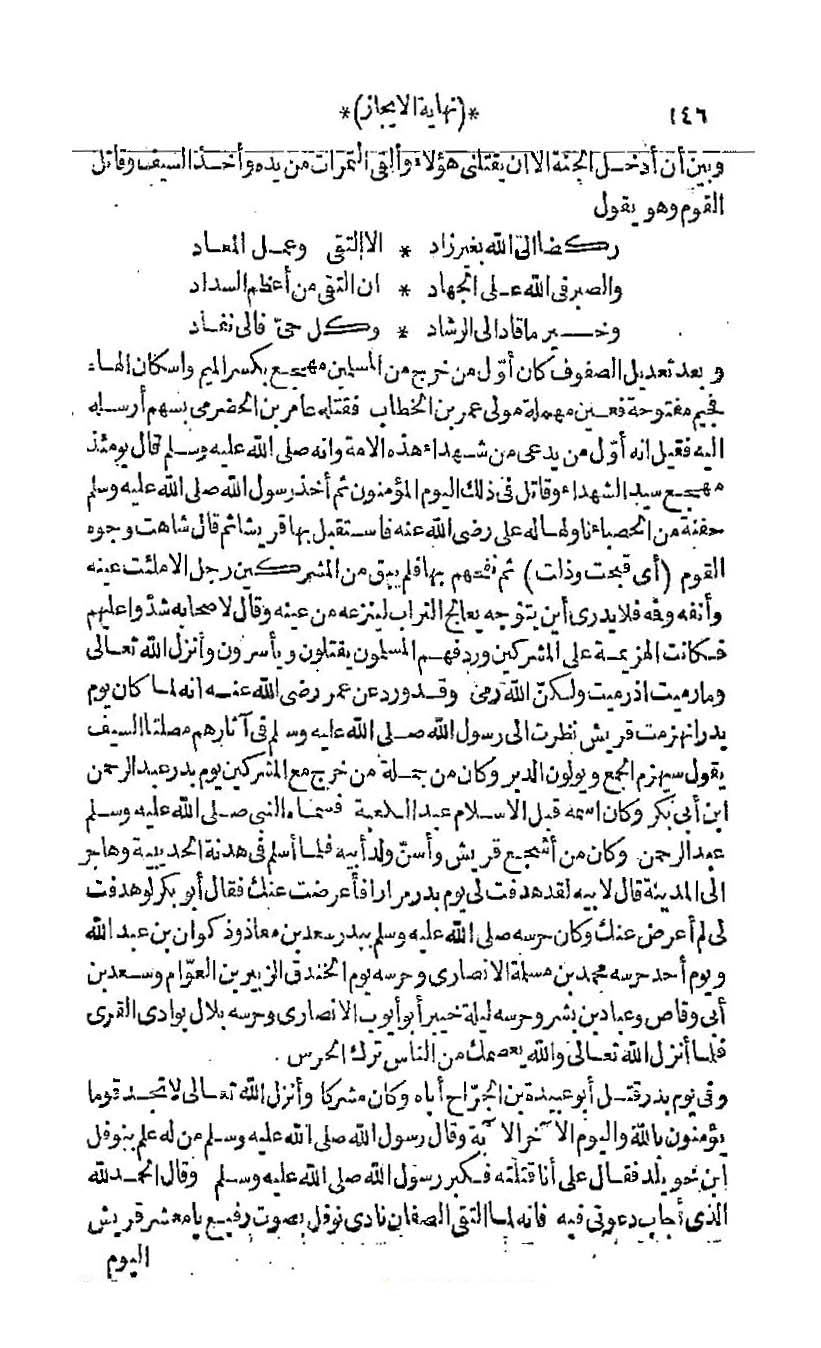 ١٤٦
*(نهاية الايجاز)*
وبين أن أدخل الجنة الا ان يقتلنى هؤلاء وألقى التمرات من يده وأخذ السيف وقاتل
القوم وهو يقول
ركضا الى الله بغير زاد * الا التقى وعمل المعاد
والصبر فى الله على الجهاد * ان التقى من أعظم السداد
وخير ما قاد الى الرشاد * وكل حىّ فالى نفاد
وبعد تعديل الصفوف كان أوّل من خرج من المسلمين مهجع بكسر الميم واسكان الهاء
فجيم مفتوحة فعين مهملة مولى عمر بن الخطاب فقتله عامر بن الحضرمى بسهم أرسله
اليه فقيل انه أوّل من يدعى من شهداء هذه الامة وانه صلى الله عليه وسلم قال يومئذ
مهجع سيد الشهداء وقاتل فى ذلك اليوم المؤمنون ثم أخذ رسول الله صلى الله عليه وسلم
حفنة من الحصباء ناولها له على رضى الله عنه فاستقبل بها قريشا ثم قال شاهت وجوه
القوم (أى قبحت وذلت) ثم نفحهم بها فلم يبق من المشركين رجل الا ملئت عينه
وأنفه وفه فلا يدرى أين يتوجه يعالج التراب لينزعه من عينه وقال لاصحابه شدّوا عليهم
فكانت الهزيمة على المشركين وردفهم المسلمون يقتلون ويأسرون وأنزل الله تعالى
وما رميت اذ رميت ولكنّ الله رمى وقد ورد عن عمر رضى الله عنه انه لما كان يوم
بدر انهزمت قريش نظرت الى رسول الله صلى الله عليه وسلم فى آثارهم مصلتا السيف
يقول سيهزم الجمع ويولون الدبر وكان من جملة من خرج مع المشركين يوم بدر عبد الرحمن
ابن أبى بكر وكان اسمه قبل الاسلام عبد الكعبة فسماه النبى صلى الله عليه وسلم
عبد الرحمن وكان من أشجع قريش وأسنّ ولد أبيه فلما أسلم فى هدنة الحديبية وهاجر
الى المدينة قال لابيه لقد هدفت لى يوم بدر مرارا فأعرضت عنك فقال أبو بكر لو هدفت
لى لم أعرض عنك وكان حرسه صلى الله عليه وسلم ببدر سعد بن معاذ وذكوان بن عبد الله
ويوم أحد حرسه محمد بن مسلمة الانصارى وحرسه يوم الخندق الزبير بن العوّام وسعد بن
أبى وقاص وعباد بن بشر وحرسه ليلة خيبر أبو أيوب الانصارى وحرسه بلال بوادى القرى
فلما أنزل الله تعالى والله يعصمك من الناس ترك الحرس .
وفى يوم بدر قتل أبو عبيدة بن الجرّاح أباه وكان مشركا وأنزل الله تعالى لا تجد قوما
يؤمنون بالله واليوم الآخر الآية وقال رسول الله صلى الله عليه وسلم من له علم بنوفل
ابن خويلد فقال على أنا قتلته فكبر رسول الله صلى الله عليه وسلم وقال الحمد لله
الذى أجاب دعوتى فيه فانه لما التقى الصفان نادى نوفل بصوت رفيع يا معشر قريش
اليوم